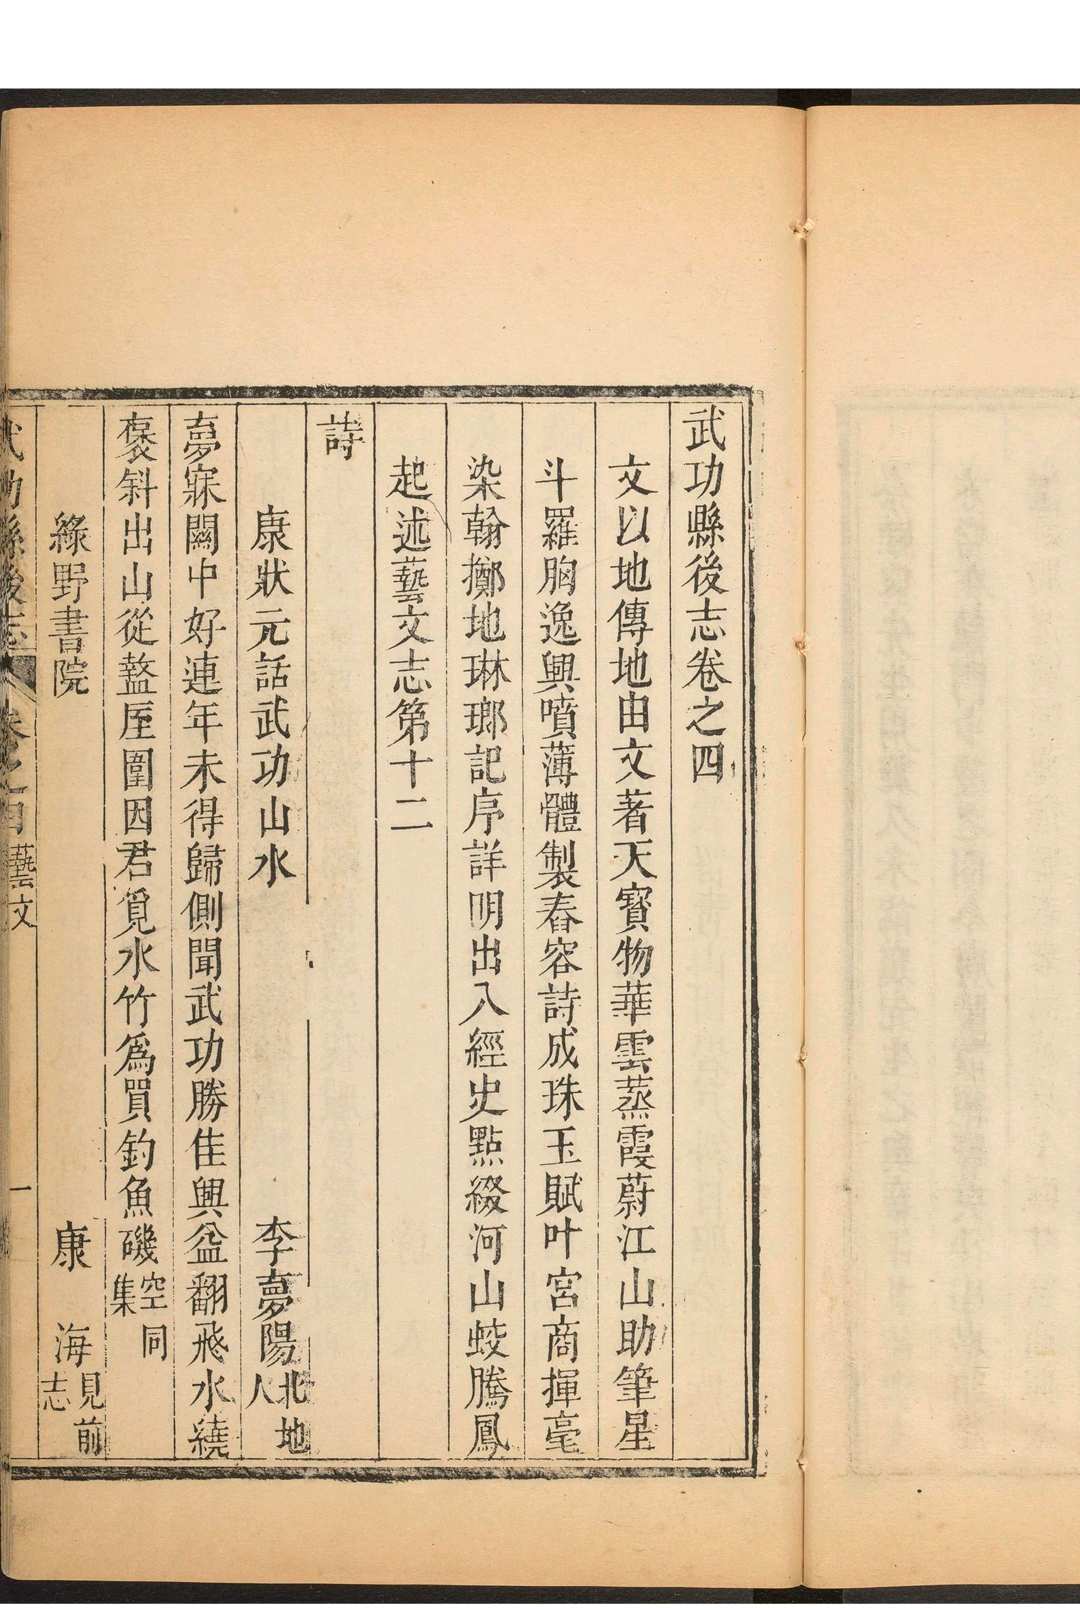 武功縣後志卷之四
文以地傳地由文著天寳物華雲蒸霞蔚江山助筆星
斗羅胸逸興噴薄體製舂容詩成珠玉賦叶宮商揮毫
染翰擲地琳瑯記序詳明出入經史點綴河山蛟騰鳳
起述藝文志第十二
詩
康狀元話武功山水 李夢陽北地人
夢寐關中好連年未得歸側聞武功勝佳興益翻飛水繞
褒斜出山從盩厔圍因君覓水竹爲買釣魚磯空同集
綠野書院 康海見前志
武功縣後志 卷之四 藝文 一